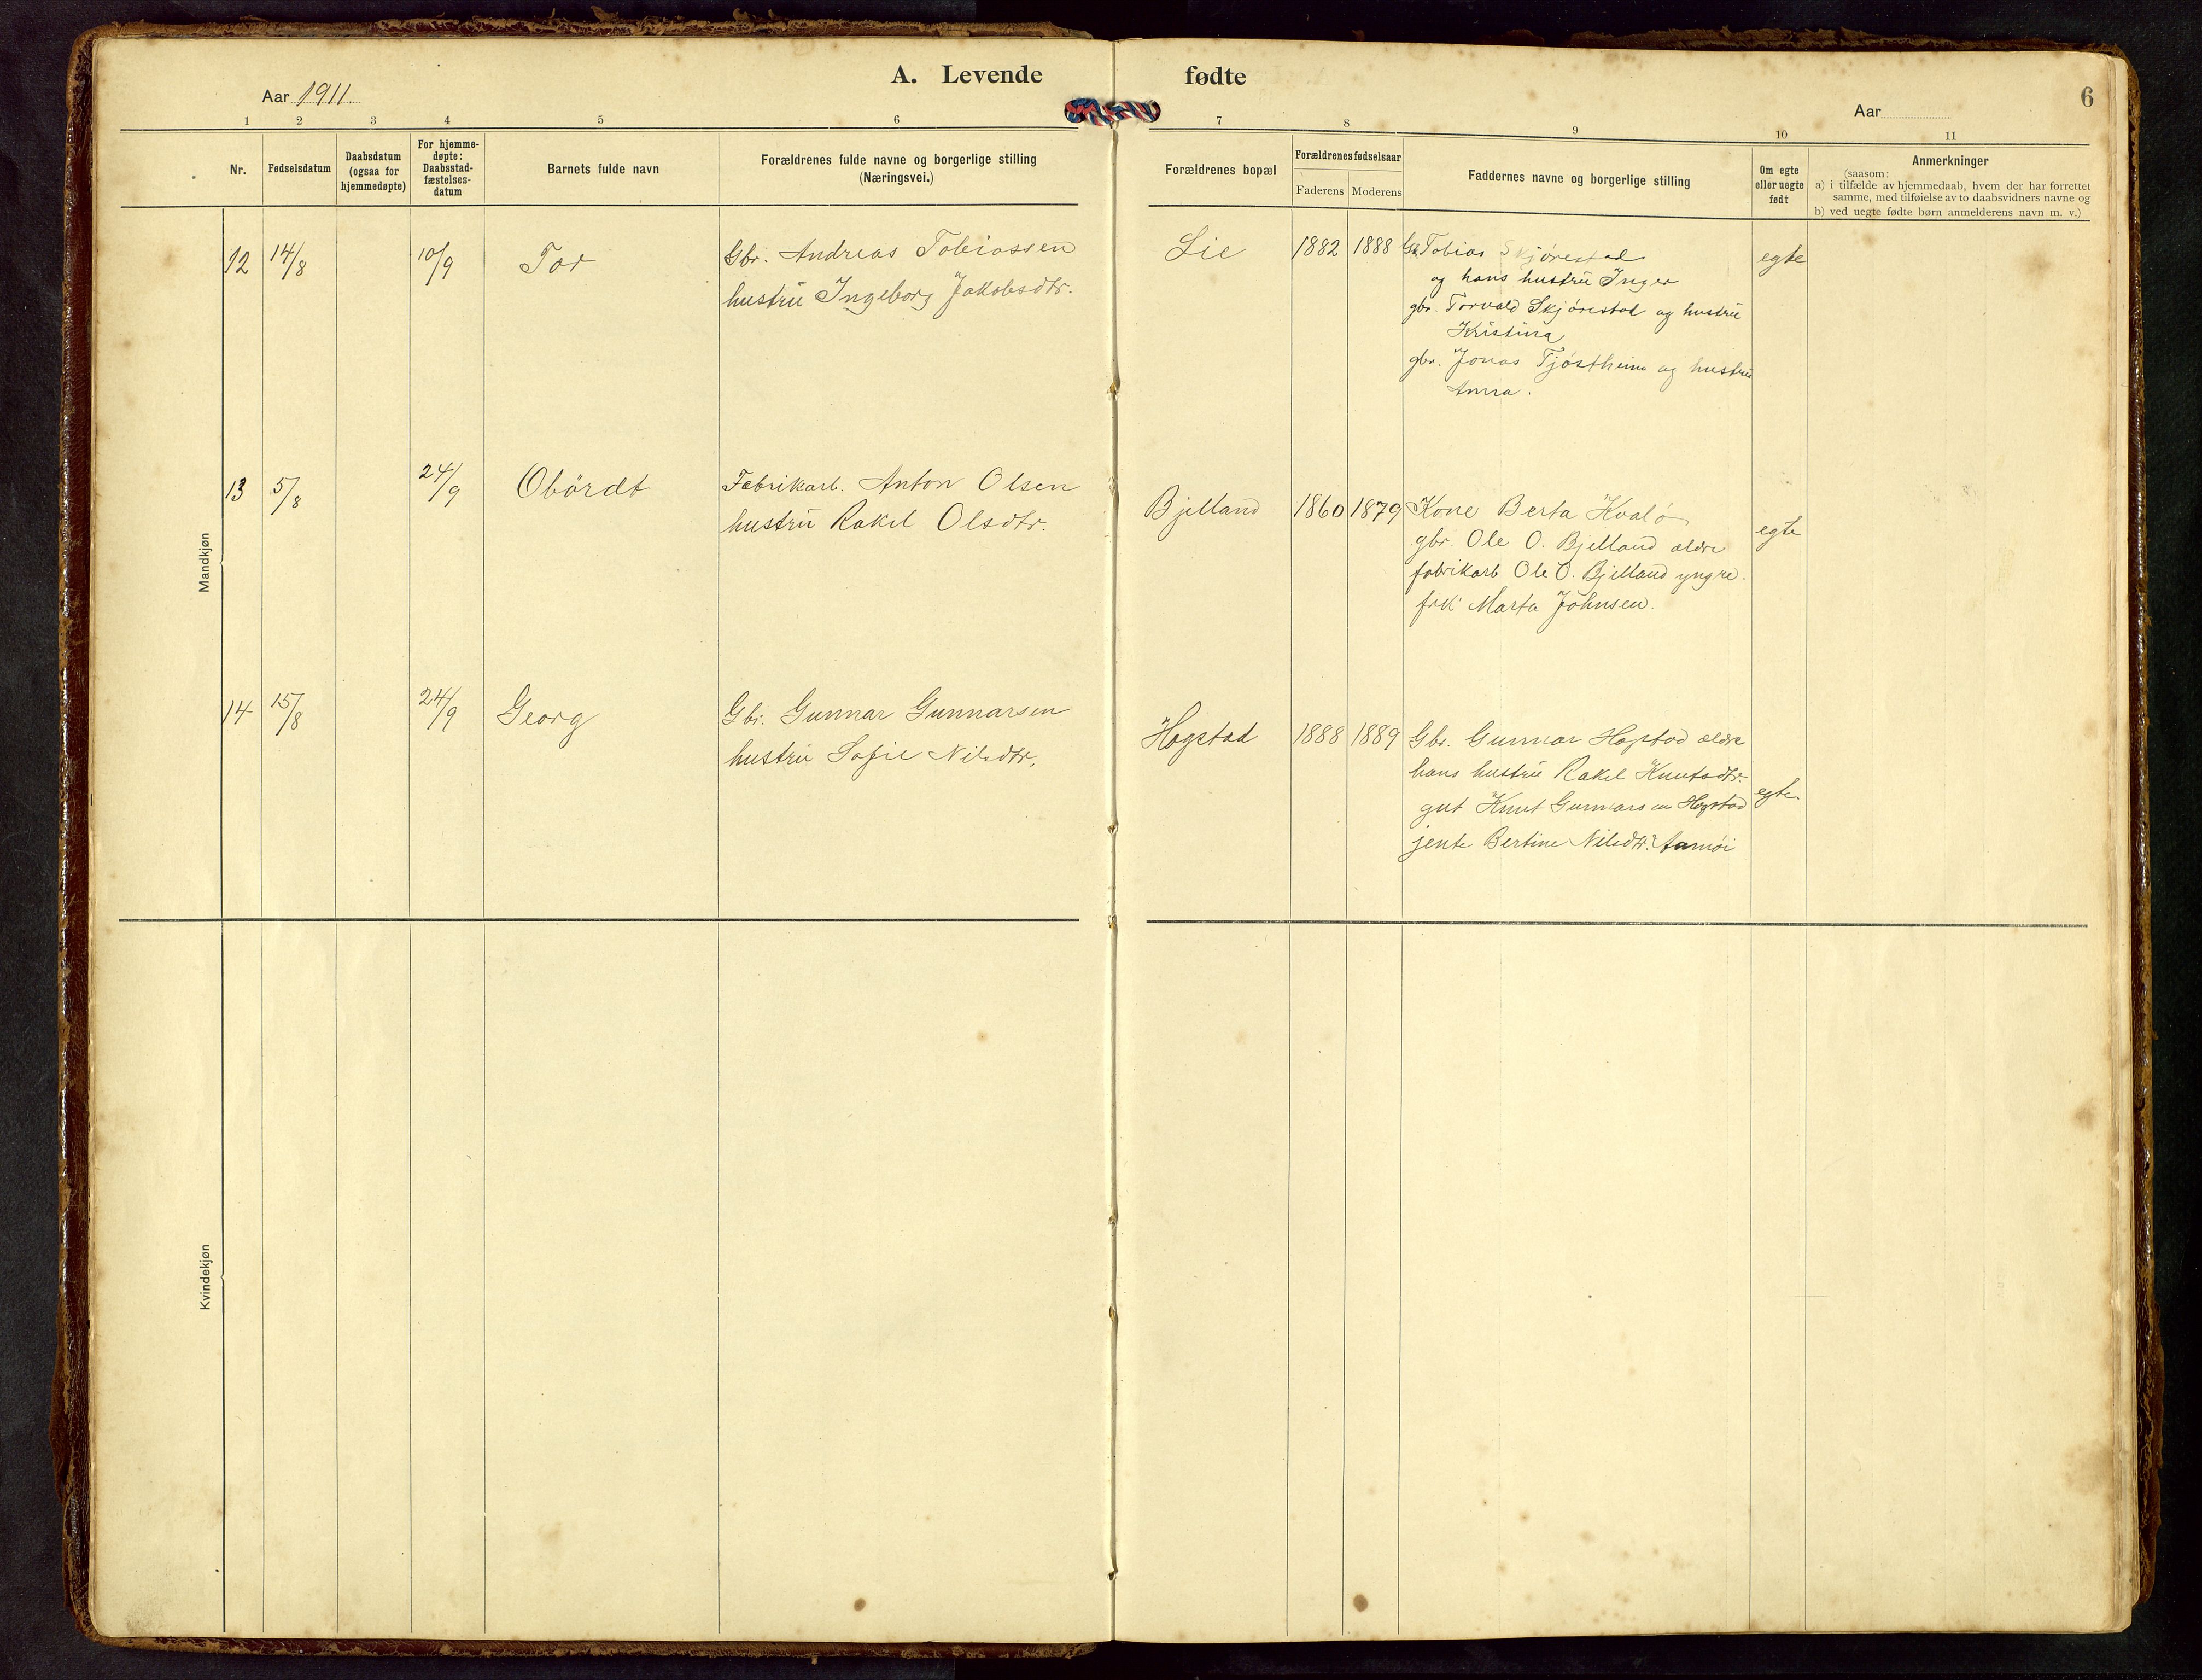 A. Levende fødte
6
Aar 1911.
Aar
1 2 3 4 5 6 7 8 9 10 11
Nr.
Fødselsdatum
Daabsdatum
(ogsaa for
hjemmedøpte)
For hjemme-
døpte:
Daabsstad-
fæstelses-
datum
Barnets fulde navn
Forældrenes fulde navne og borgerlige stilling
(Næringsvei.)
Forældrenes bopæl
Forældrenes fødselsaar
Faderens Moderens
Faddernes navne og borgerlige stilling
Om egte
eller uegte
født
Anmerkninger
(saasom:
a) i tilfælde av hjemmedaab, hvem der har forrettet
samme, med tilføielse av to daabsvidners navne og
b) ved uegte fødte børn anmelderens navn m. v.)
Mandkjøn
12 14/8 10/9 Tor
Gbr. Andreas Tobiassen
hustru Ingeborg Jakobsdtr.
Lie 1882 1888
Gbr. Tobias Skjørestad
og hans hustru Inger
gbr. Torvald Skjørestad og hustru
Kristina
gbr. Jonas Tjøstheim og hustru
Anna.
egte
13 5/8 24/9 Obördt
Fabrikarb. Anton Olsen
hustru Rakel Olsdtr.
Bjelland 1860 1879
Kone Berta Kvalø
gbr. Ole O. Bjelland ældre
fabrikarb Ole O. Bjelland yngre.
frk. Marta Johnsen.
egte
14 15/8 24/9 Georg
Gbr. Gunnar Gunnarsen
hustru Sofie Nilsdtr.
Hogstad 1888 1889
Gbr. Gunnar Hogstad ældre
hans hustru Rakel Knutsdtr.
gut Knut Gunnarsen Hogstad
jente Bertine Nilsdtr. Aamøi
egte.
Kvindekjøn